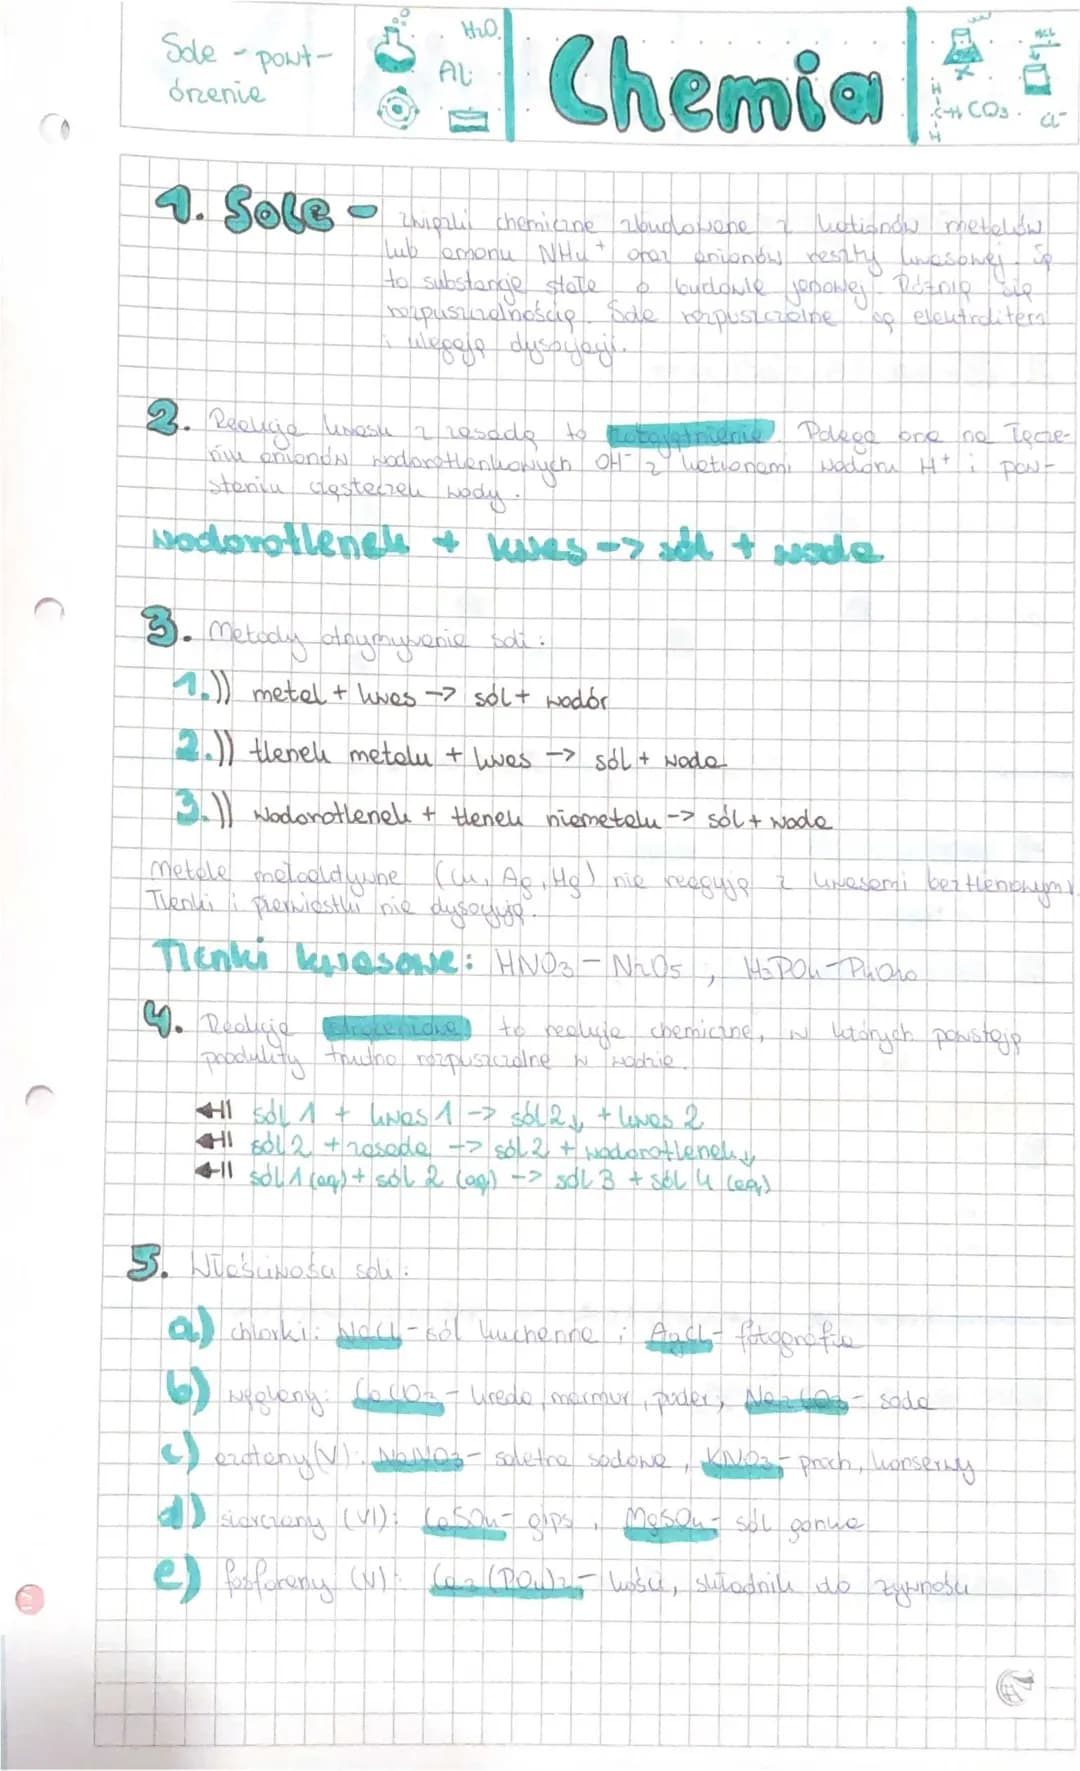 Sole - powt-
órzenie
H₂O
Al
Chemia
HCl
CO₃
Cl⁻
1. Sole - związki chemiczne zbudowane z kationów metalów
lub amonu NH₄⁺ oraz anionów reszty kwasowej. Są
to substancje stałe o budowie jonowej. Różnią się
rozpuszczalnością. Sole rozpuszczalne są elektrolitem
i ulegają dysocjacji.
2. Reakcja kwasu z zasadą to zobojętnienie. Polega ona na łącze-
niu anionów wodorotlenkowych OH⁻ z kationami wodoru H⁺ i pow-
staniu cząsteczek wody.
wodorotlenek + kwas -> sól + woda
3. Metody otrzymywania soli:
1.)) metal + kwas -> sól + wodór
2.)) tlenek metalu + kwas -> sól + woda
3.)) wodorotlenek + tlenek niemetalu -> sól + woda
Metale (Cu, Ag, Hg) nie reagują z kwasami beztlenowymi.
Tlenki i pierwiastki nie dysocjują.
Tlenki kwasowe: HNO₃ - N₂O₅, H₃PO₄ - P₄O₁₀
4. Reakcje strąceniowe to reakcje chemiczne, w których powstają
produkty trudno rozpuszczalne w wodzie.
sól 1 + kwas 1 -> sól 2↓ + kwas 2
sól 2 + zasada -> sól 2 + wodorotlenek↓
sól 1 (aq) + sól 2 (aq) -> sól 3 + sól 4 (aq)
5. Właściwości soli:
a) chlorki: NaCl - sól kuchenna ; AgCl - fotografia
b) węglany: CaCO₃ - kreda, marmur, puder; Na₂CO₃ - soda
c) azotany (V): NaNO₃ - saletra sodowa, KNO₃ - proch, konserwy
d) siarczany (VI): CaSO₄ - gips, MgSO₄ - sól gorzka
e) fosforany (V): Ca₃(PO₄)₂ - kości, składnik do żywności